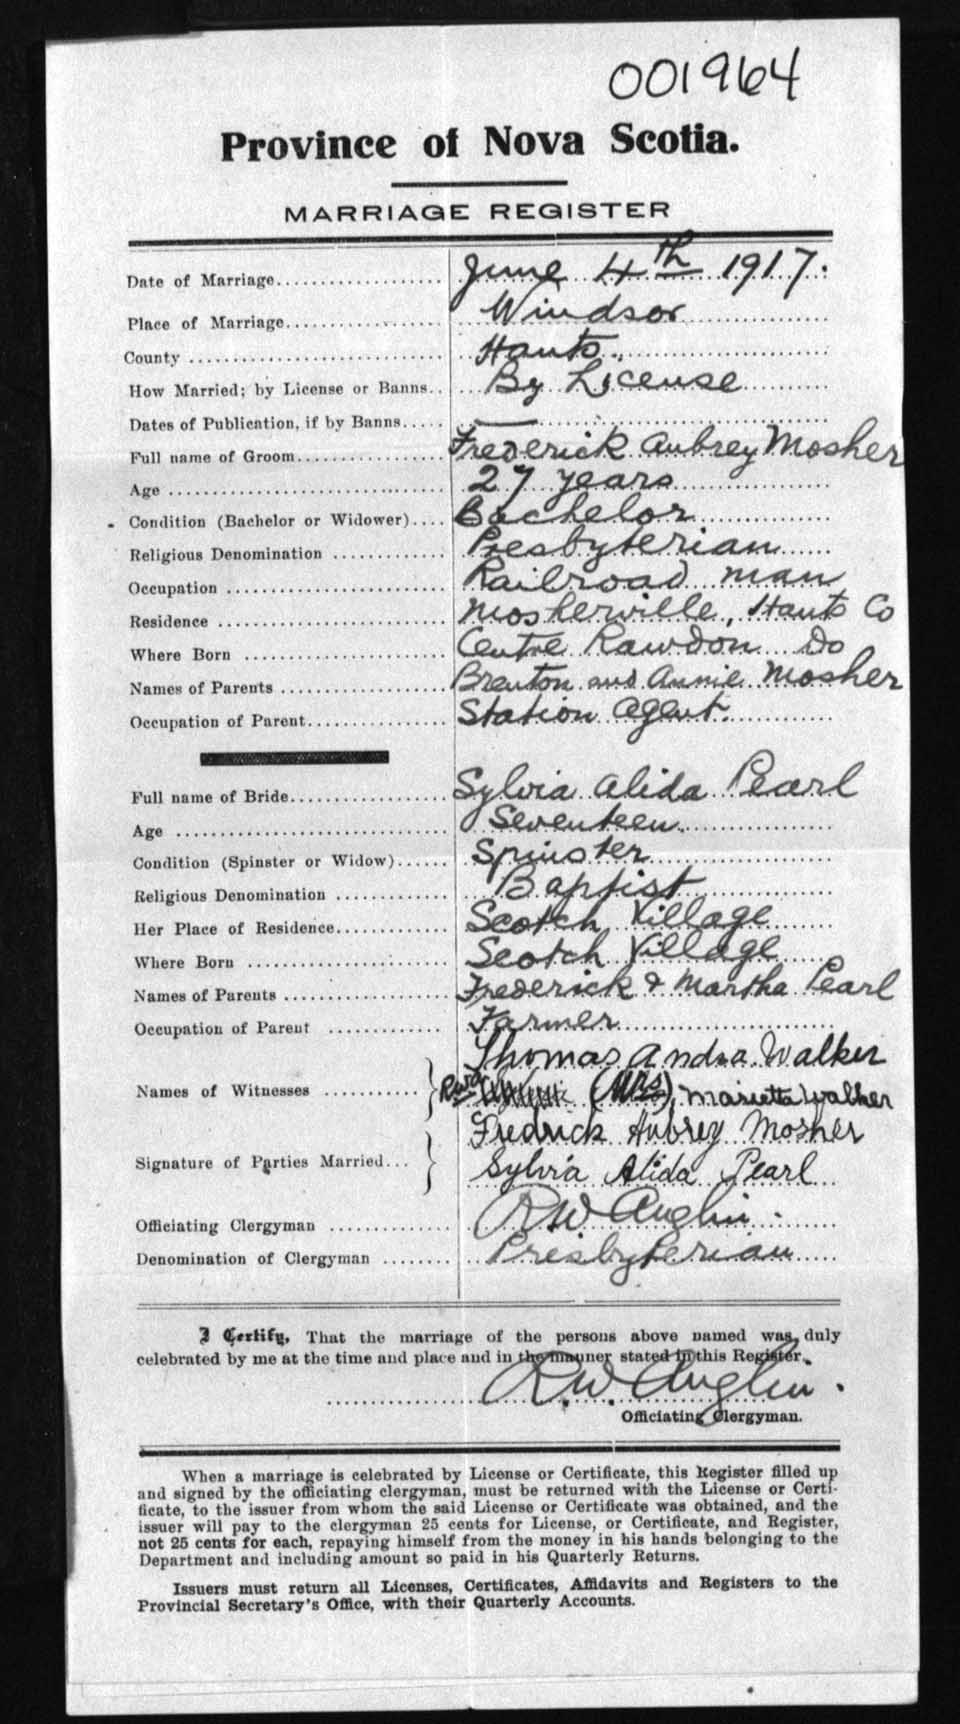 001964
Province of Nova Scotia.
MARRIAGE REGISTER
Date of Marriage.................... June 4th 1917.
Place of Marriage.................... Windsor
County .................... Hants.
How Married; by License or Banns.. By License
Dates of Publication, if by Banns..... —
Full name of Groom.................... Frederick Aubrey Mosher
Age .................... 27 years
Condition (Bachelor or Widower).... Bachelor
Religious Denomination ............. Presbyterian
Occupation .................... Railroad man
Residence .................... Mosherville, Hants Co
Where Born .................... Centre Rawdon Do
Names of Parents .................... Brenton and Annie Mosher
Occupation of Parent................. Station Agent.
Full name of Bride.................... Sylvia Alida Pearl
Age .................... Seventeen
Condition (Spinster or Widow)...... Spinster
Religious Denomination ............. Baptist
Her Place of Residence............. Scotch Village
Where Born .................... Scotch Village
Names of Parents .................... Frederick & Martha Pearl
Occupation of Parent ............. Farmer
Thomas Andra Walker
Names of Witnesses ............ (Mrs), Marietta Walker
Fredrick Aubrey Mosher
Signature of Parties Married... Sylvia Alida Pearl
Officiating Clergyman ............. R W Anglin.
Denomination of Clergyman ........ Presbyterian
I Certify, That the marriage of the persons above named was duly
celebrated by me at the time and place and in the manner stated in this Register.
R. W. Anglin.
Officiating Clergyman.
When a marriage is celebrated by License or Certificate, this Register filled up
and signed by the officiating clergyman, must be returned with the License or Certi-
ficate, to the issuer from whom the said License or Certificate was obtained, and the
issuer will pay to the clergyman 25 cents for License, or Certificate, and Register,
not 25 cents for each, repaying himself from the money in his hands belonging to the
Department and including amount so paid in his Quarterly Returns.
Issuers must return all Licenses, Certificates, Affidavits and Registers to the
Provincial Secretary's Office, with their Quarterly Accounts.